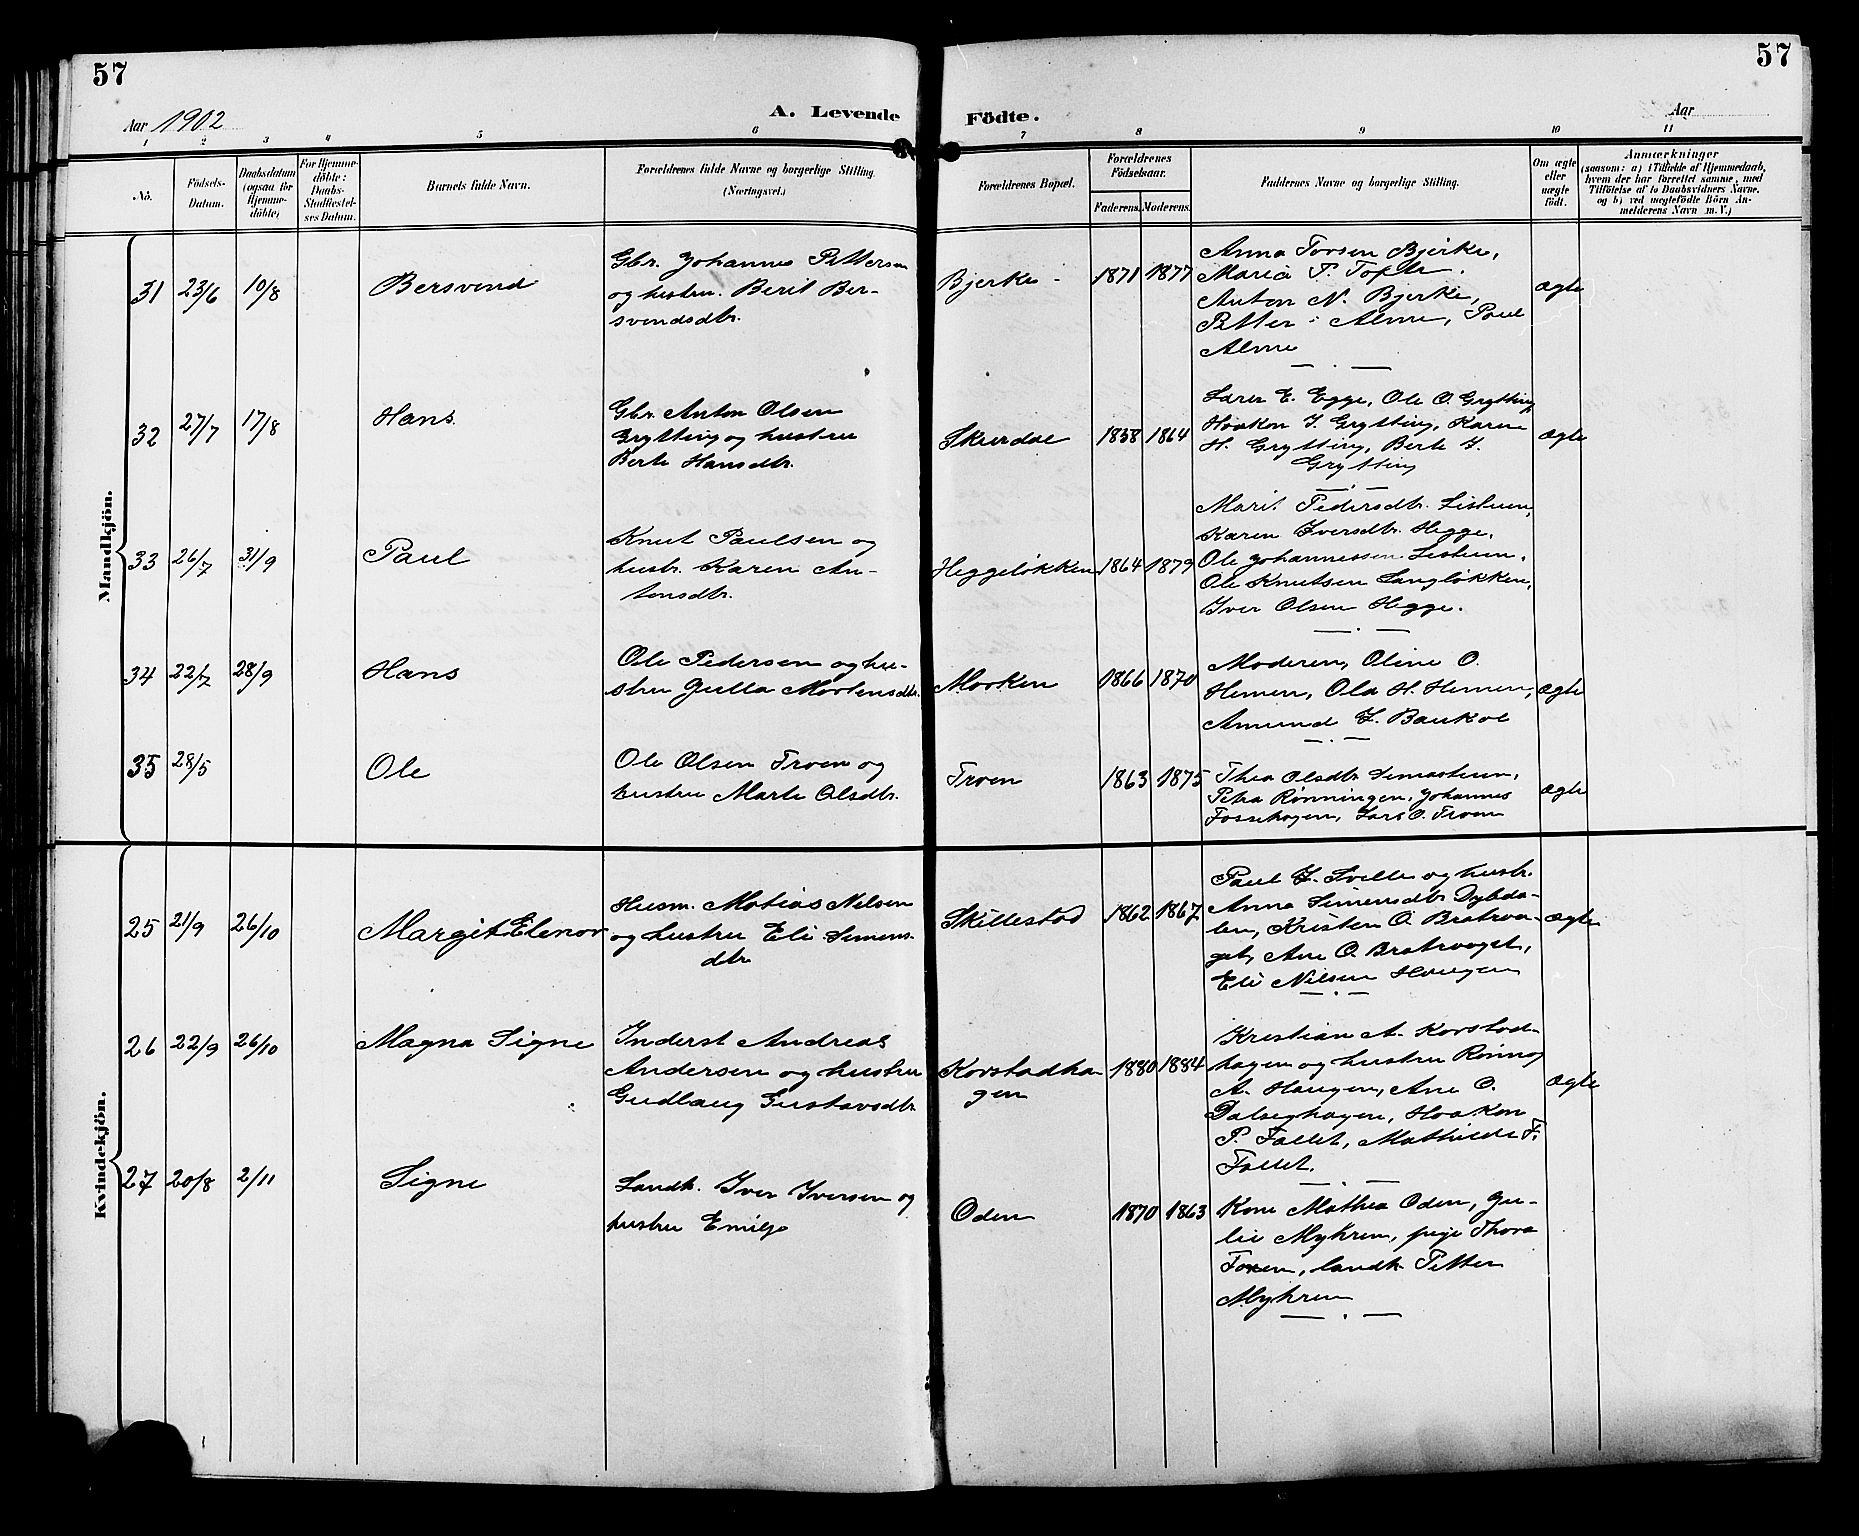 57
57
Aar 1902
A. Levende Födte.
Aar
1 2 3 4 5 6 7 8 9 10 11
No.
Födsels-Datum.
Daabsdatum (ogsaa for Hjemmedöbte)
For Hjemmedöbte: Daabs-Stadfæstelses Datum.
Barnets fulde Navn.
Forældrenes fulde Navne og borgerlige Stilling. (Næringsvei.)
Forældrenes Bopæl.
Forældrenes Födselsaar.
Faderens. Moderens.
Faddernes Navne og borgerlige Stilling.
Om ægte eller uægte födt.
Anmærkninger
(saasom: a) i Tilfælde af Hjemmedaab,
hvem der har forrettet samme, med
Tilföielse af to Daabsvidners Navne.
og b) ved uægtefödte Börn An-
melderens Navn m. V.)
Mandkjön.
31 23/6 10/8 Bersvend
Gbr. Johannes Pettersen
og hustru Berit Ber-
svendsdtr.
Bjerke 1871 1877
Anna Torsen Bjerke,
Maria P. Tofte.
Anton N. Bjerke,
Petter Alme, Paul
Alme
ægte
32 27/7 17/8 Hans.
Gbr. Anton Olsen
Grytting og hustru
Berte Hansdtr.
Skurdal 1838 1864
Lars E. Egge, Ole O. Grytting
Haakon J. Grytting, Karen
H. Grytting, Berte J.
Grytting
ægte
33 26/7 31/9 Paul
Knut Paulsen og
hustr. Karen An-
tonsdtr.
Heggeløkken 1864 1879
Marit Pedersdtr. Listuen,
Karen Iversdtr. Hegge.
Ole Johannessen Listuen.
Ole Knutsen Langløkken,
Iver Olsen Hegge.
34 22/7 28/9 Hans
Ole Pedersen og hu-
stru Gulla Mortensdtr.
Morken 1866 1870
Moderen, Oline O.
Hemen, Ola H. Hemen,
Amund J. Baukol
ægte
35 28/5 Ole
Ole Olsen Troen og
hustru Marte Olsdtr.
Troen 1863 1875
Thea Olsdtr.
Petra Rønningen, Johannes
Fossehagen, Lars O. Troen
ægte
Kvindekjön.
25 21/9 26/10 Margit Elenor
Husm. Matias Nilsen
og hustru Eli Simens-
dtr.
Skillestad 1862 1867
Paul J. Tville og hustr.
Anna Simensdtr. Dybda-
len, Kristen O. Bratvo-
get, Ane O. Bratvoget,
Eli Nilsen Haugen
ægte
26 22/9 26/10 Magna Signe
Inderst Andreas
Andersen og hustru
Gudlaug Gustavsdtr.
Korstadha-
gen
1880 1884
Kristian A. Korstad-
hagen og hustru Rønnog
A. Haugen, Ane O.
Dalseghagen, Haakon
P. Fallet, Mathilde F.
Fallet.
ægte
27 20/8 2/11 Signe
Landh. Iver Iversen og
hustru Emilje
Oden 1870 1863
Kone Mathea Oden, Ju-
lie Myhren, pige Thora
Foren, landh. Petter
Myhren